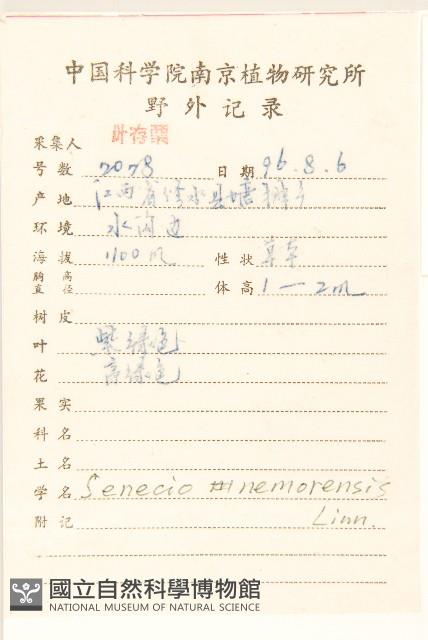 中国科学院南京植物研究所
野外记录
采集人 叶存粟
号数 2078 日期 96.8.6
产地 江西省 水县
环境 水沟边
海拔 1100m 性状 草本
胸高直径 体高 1-2m
树皮
叶 紫绿色
花 绿色
果实
科名
土名
学名 Senecio nemorensis
附记 Linn.
國立自然科學博物館
NATIONAL MUSEUM OF NATURAL SCIENCE